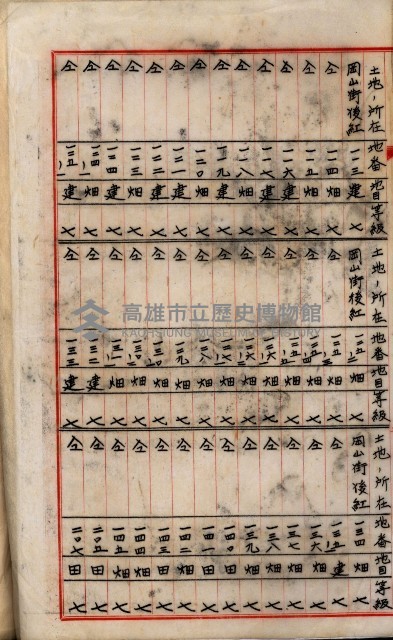 土地ノ所在 地番 地目 等級
岡山街後紅 一一三 建 七
仝 一一四 畑 七
仝 一一五 畑 七
仝 一一六 建 七
仝 一一七 建 七
仝 一一八 畑 七
仝 一一九 建 七
仝 一二〇 畑 七
仝 一二一 建 七
仝 一二二 建 七
仝 一二三 畑 七
仝 一二四 建 七
仝 一二四ノ一 畑 七
仝 建 七
土地ノ所在 地番 地目 等級
岡山街後紅 畑 七
仝 畑 七
仝 畑 七
仝 畑 七
仝 畑 七
仝 畑 七
仝 畑 七
仝 一二八 畑 七
仝 一二九 畑 七
仝 一三〇 畑 七
仝 畑 七
仝 畑 七
仝 一三二 建 七
仝 一三三 建 七
土地ノ所在 地番 地目 等級
岡山街後紅 一三四 畑 七
仝 建 七
仝 畑 七
仝 一三七 畑 七
仝 一三八 畑 七
仝 一三九 畑 七
仝 一四〇 田 七
仝 一四一 田 七
仝 一四二 畑 七
仝 一四三 田 七
仝 一四四 畑 七
仝 一四五 畑 七
仝 二〇五 田 七
仝 二〇七 田 七
高雄市立歷史博物館
KAOHSIUNG MUSEUM OF HISTORY